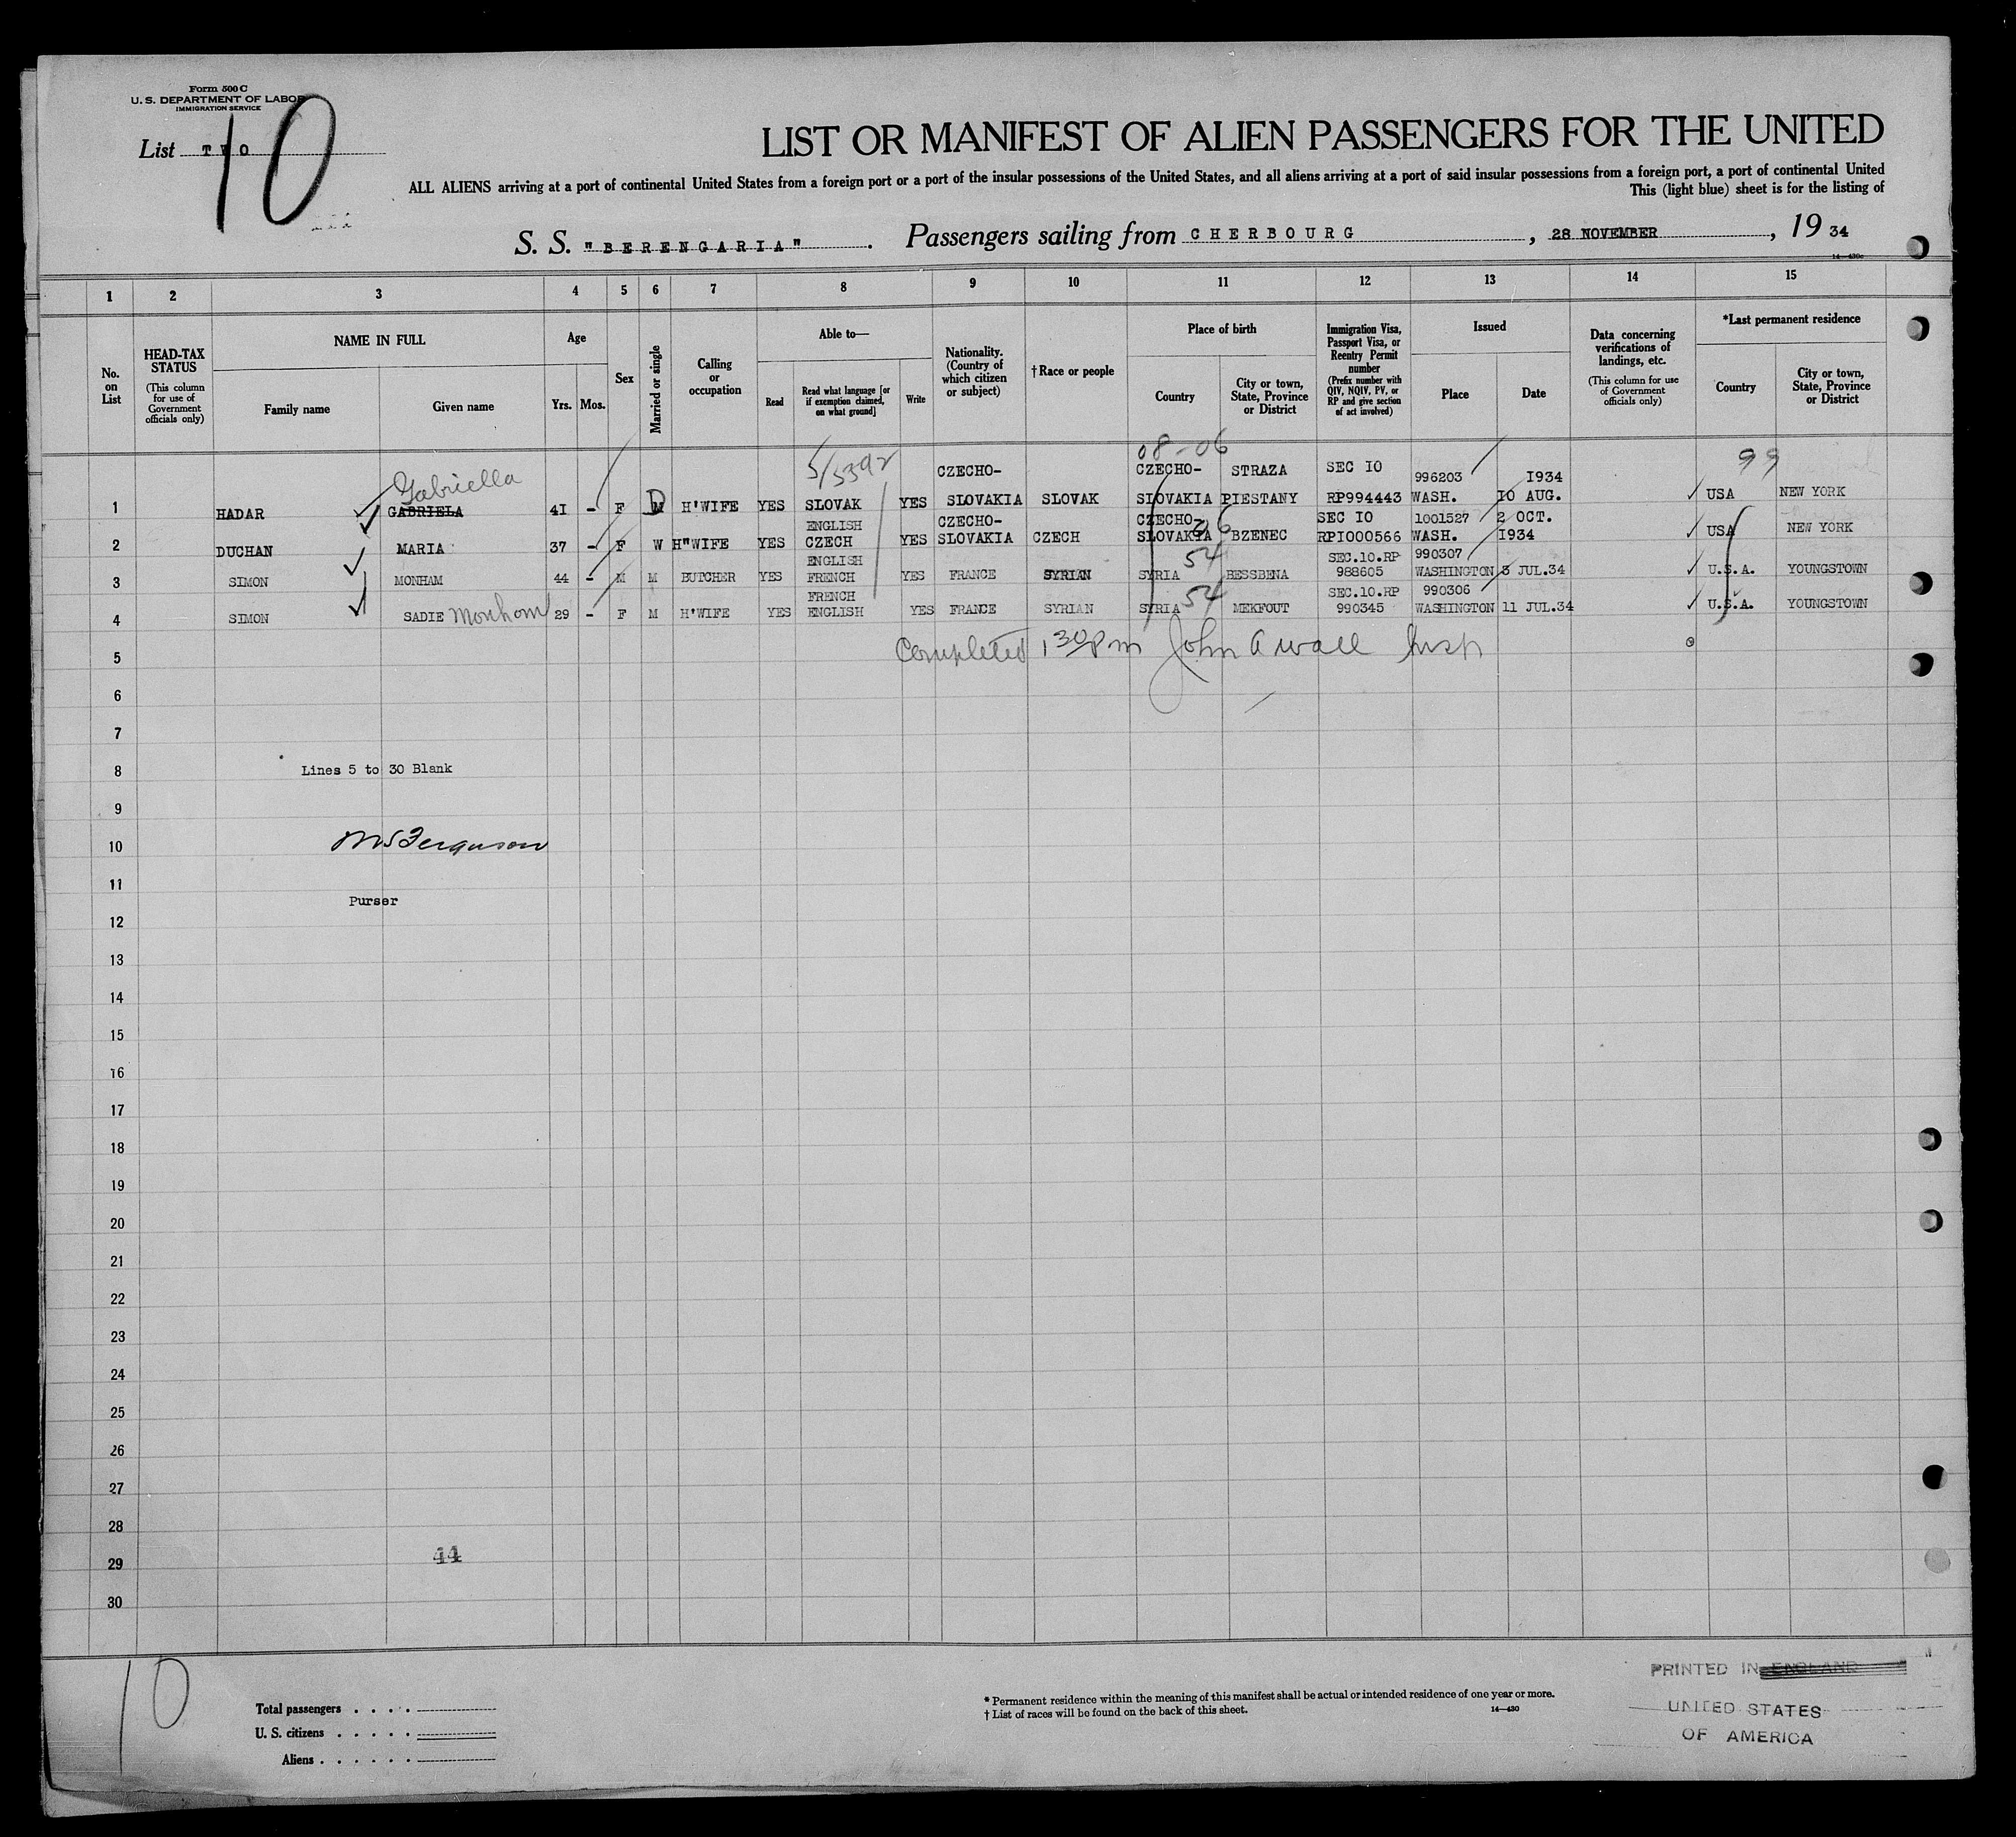 Form 500 C
U. S. DEPARTMENT OF LABOR
IMMIGRATION SERVICE
List TWO
10
LIST OR MANIFEST OF ALIEN PASSENGERS FOR THE UNITED
ALL ALIENS arriving at a port of continental United States from a foreign port or a port of the insular possessions of the United States, and all aliens arriving at a port of said insular possessions from a foreign port, a port of continental United
This (light blue) sheet is for the listing of
S. S. "BERENGARIA". Passengers sailing from CHERBOURG, 28 NOVEMBER, 1934
14—430c
1 2 3 4 5 6 7 8 9 10 11 12 13 14 15
No. on List
HEAD-TAX STATUS
(This column for use of Government officials only)
NAME IN FULL
Family name
Given name
Age
Yrs.
Mos.
Sex
Married or single
Calling or occupation
Able to—
Read
Read what language [or if exemption claimed, on what ground]
Write
Nationality. (Country of which citizen or subject)
† Race or people
Place of birth
Country
City or town, State, Province or District
Immigration Visa, Passport Visa, or Reentry Permit number
(Prefix number with QIV, NQIV, PV, or RP and give section of act involved)
Issued
Place
Date
Data concerning verifications of landings, etc.
(This column for use of Government officials only)
*Last permanent residence
Country
City or town, State, Province or District
08-06
5/5392
99
Gabriella
CZECHO- CZECHO- STRAZA SEC IO 996203 I934
1 HADAR GABRIELA 4I - F M D H'WIFE YES SLOVAK YES SLOVAKIA SLOVAK SLOVAKIA PIESTANY RP994443 WASH. IO AUG. USA NEW YORK
ENGLISH CZECHO- CZECHO- 06 SEC IO 1001527 2 OCT.
2 DUCHAN MARIA 37 - F W H"WIFE YES CZECH YES SLOVAKIA CZECH SLOVAKIA BZENEC RPI000566 WASH. I934 USA NEW YORK
ENGLISH 54 SEC.10.RP 990307
3 SIMON MONHAM 44 - M M BUTCHER YES FRENCH YES FRANCE SYRIAN SYRIA BESSBENA 988605 WASHINGTON 3 JUL.34 U.S.A. YOUNGSTOWN
FRENCH 54 SEC.10.RP 990306
4 SIMON SADIE Monhom 29 - F M H'WIFE YES ENGLISH YES FRANCE SYRIAN SYRIA MEKFOUT 990345 WASHINGTON 11 JUL.34 U.S.A. YOUNGSTOWN
Completed 1 30 Pm John A Wall Insp
5
6
7
8 Lines 5 to 30 Blank
9
10 Ferguson
11
Purser
12
13
14
15
16
17
18
19
20
21
22
23
24
25
26
27
28
29 44
30
10
Total passengers . . . .
U. S. citizens . . . . .
Aliens . . . . . .
* Permanent residence within the meaning of this manifest shall be actual or intended residence of one year or more.
† List of races will be found on the back of this sheet.
14—430
PRINTED IN ENGLAND
UNITED STATES
OF AMERICA